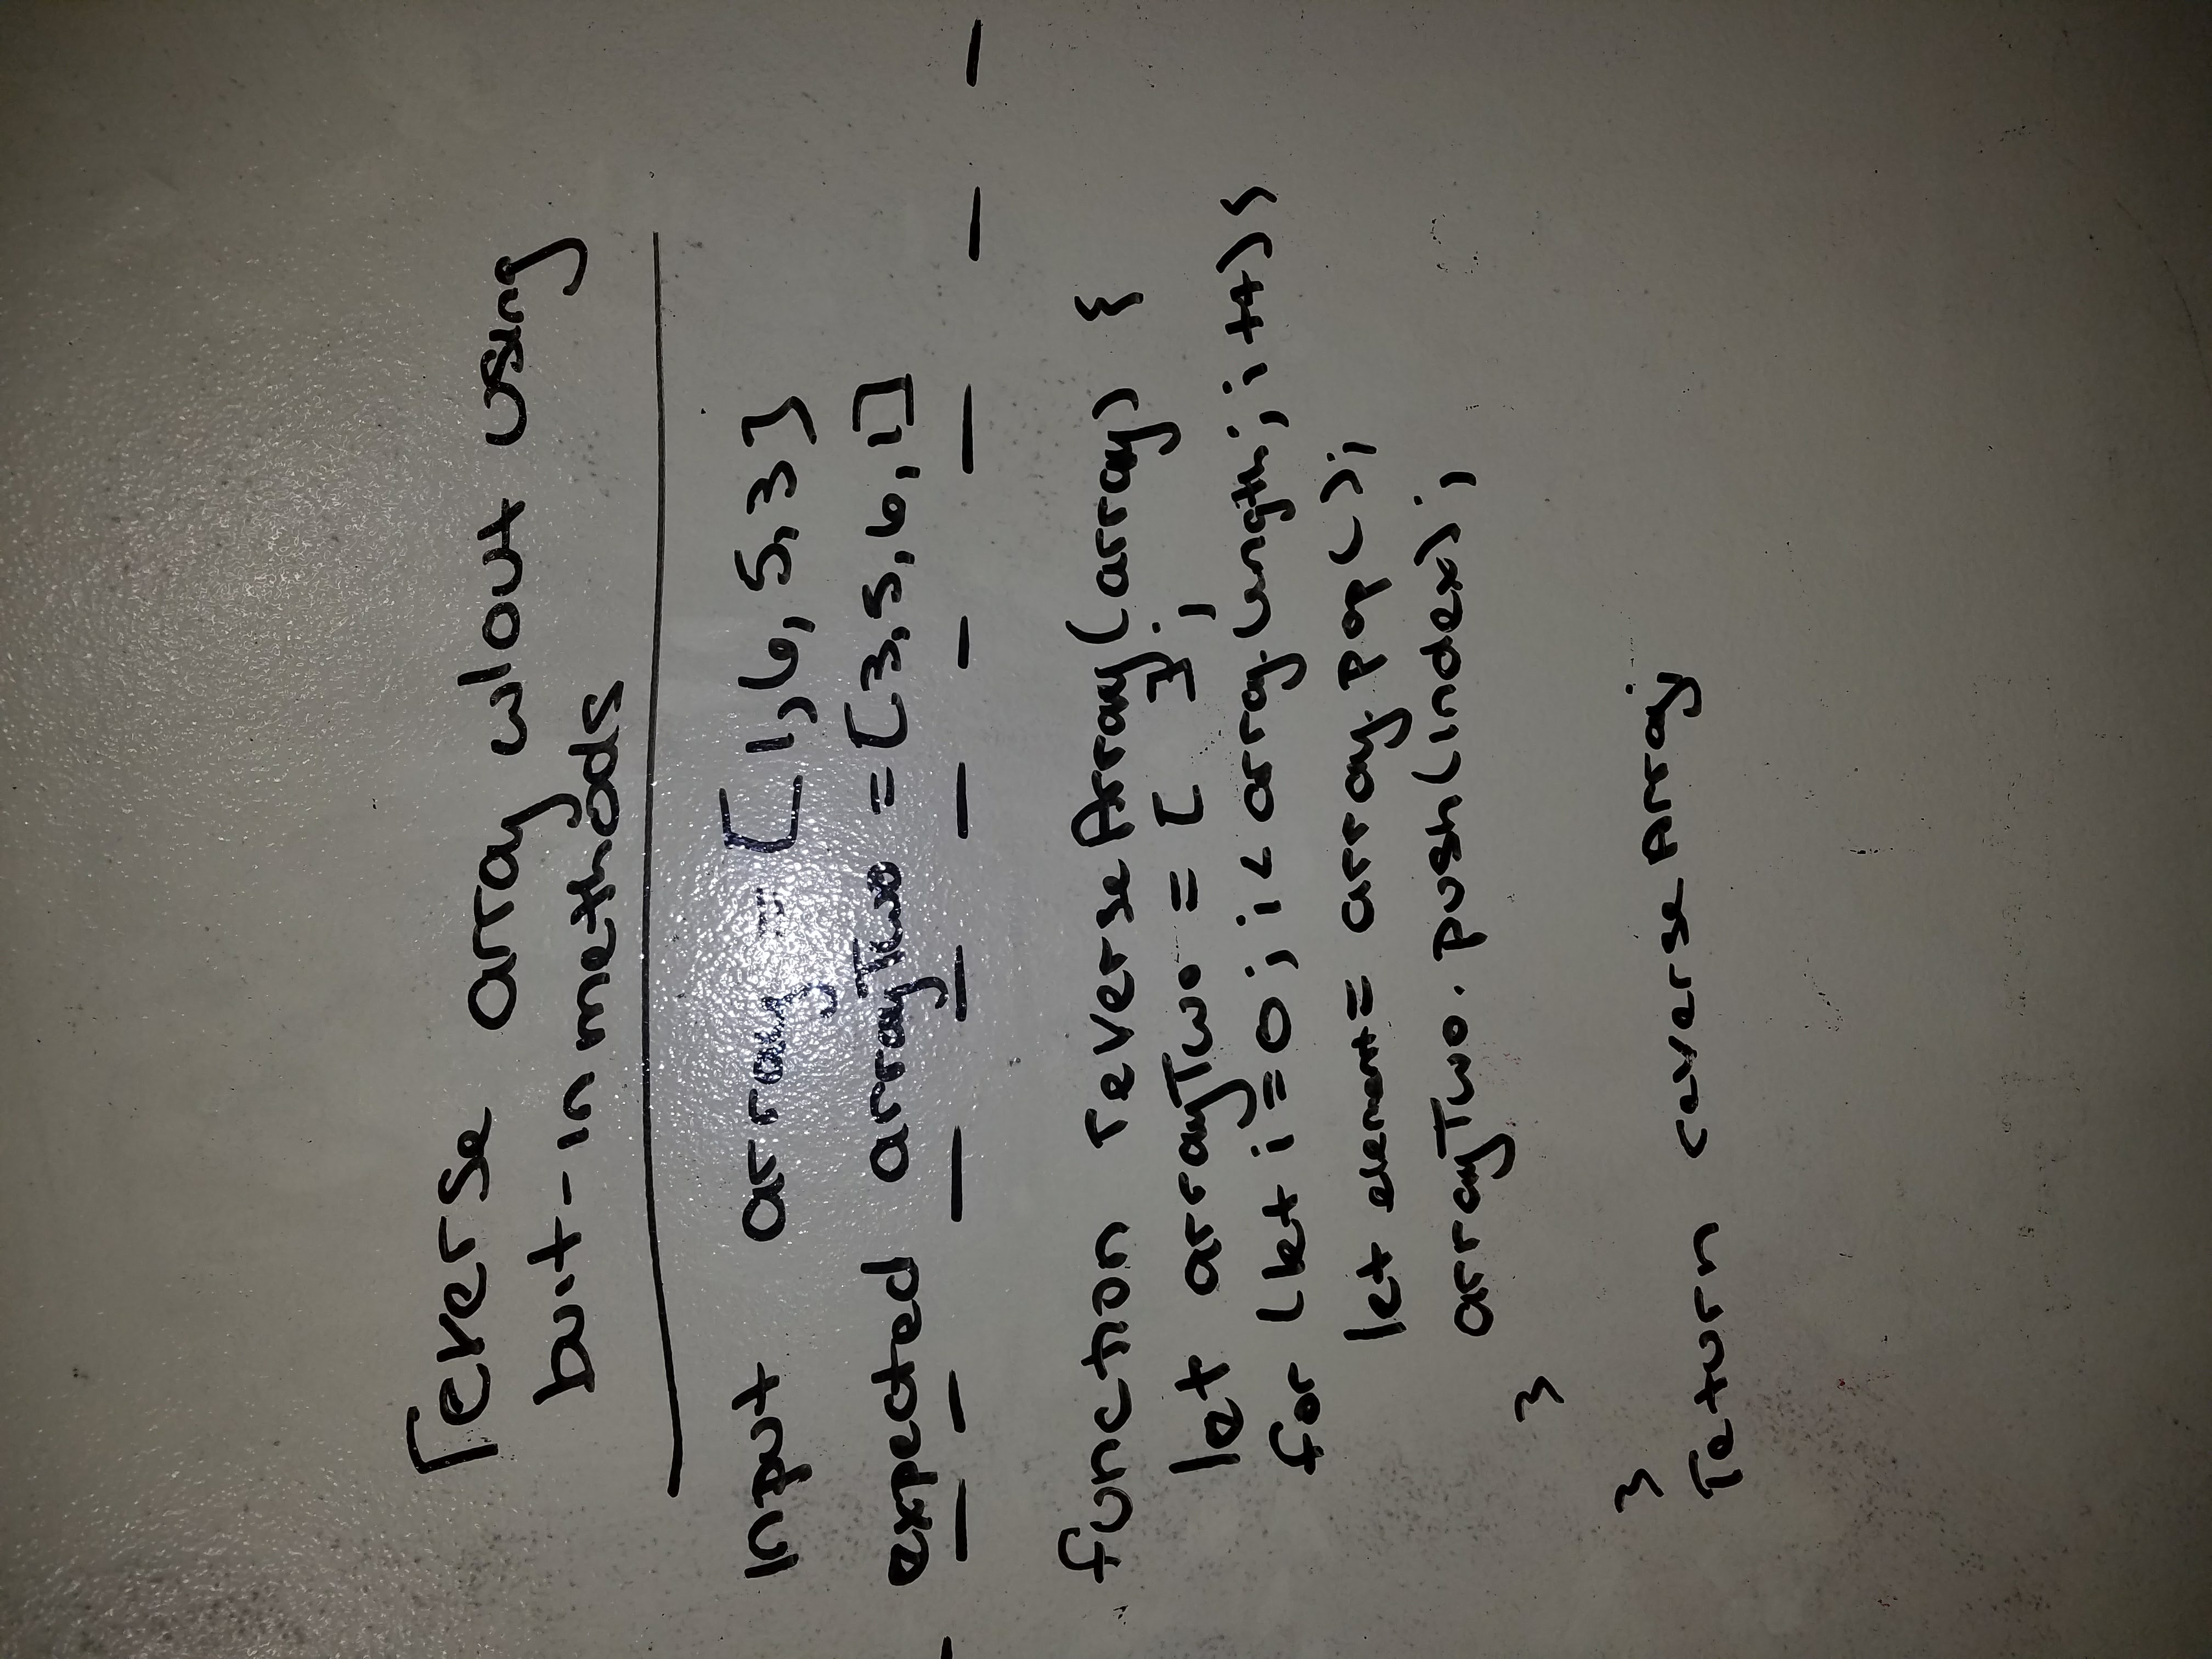 reverse array w/out using
buit-in methods
Input array = [1,6,5,3]
expected arrayTwo = [3,5,6,1]
function reverseArray(array) {
let arrayTwo = [ ];
for (let i=0; i< array.length; i++) {
let element = array.pop();
arrayTwo.push(index);
}
}
return reverseArray;